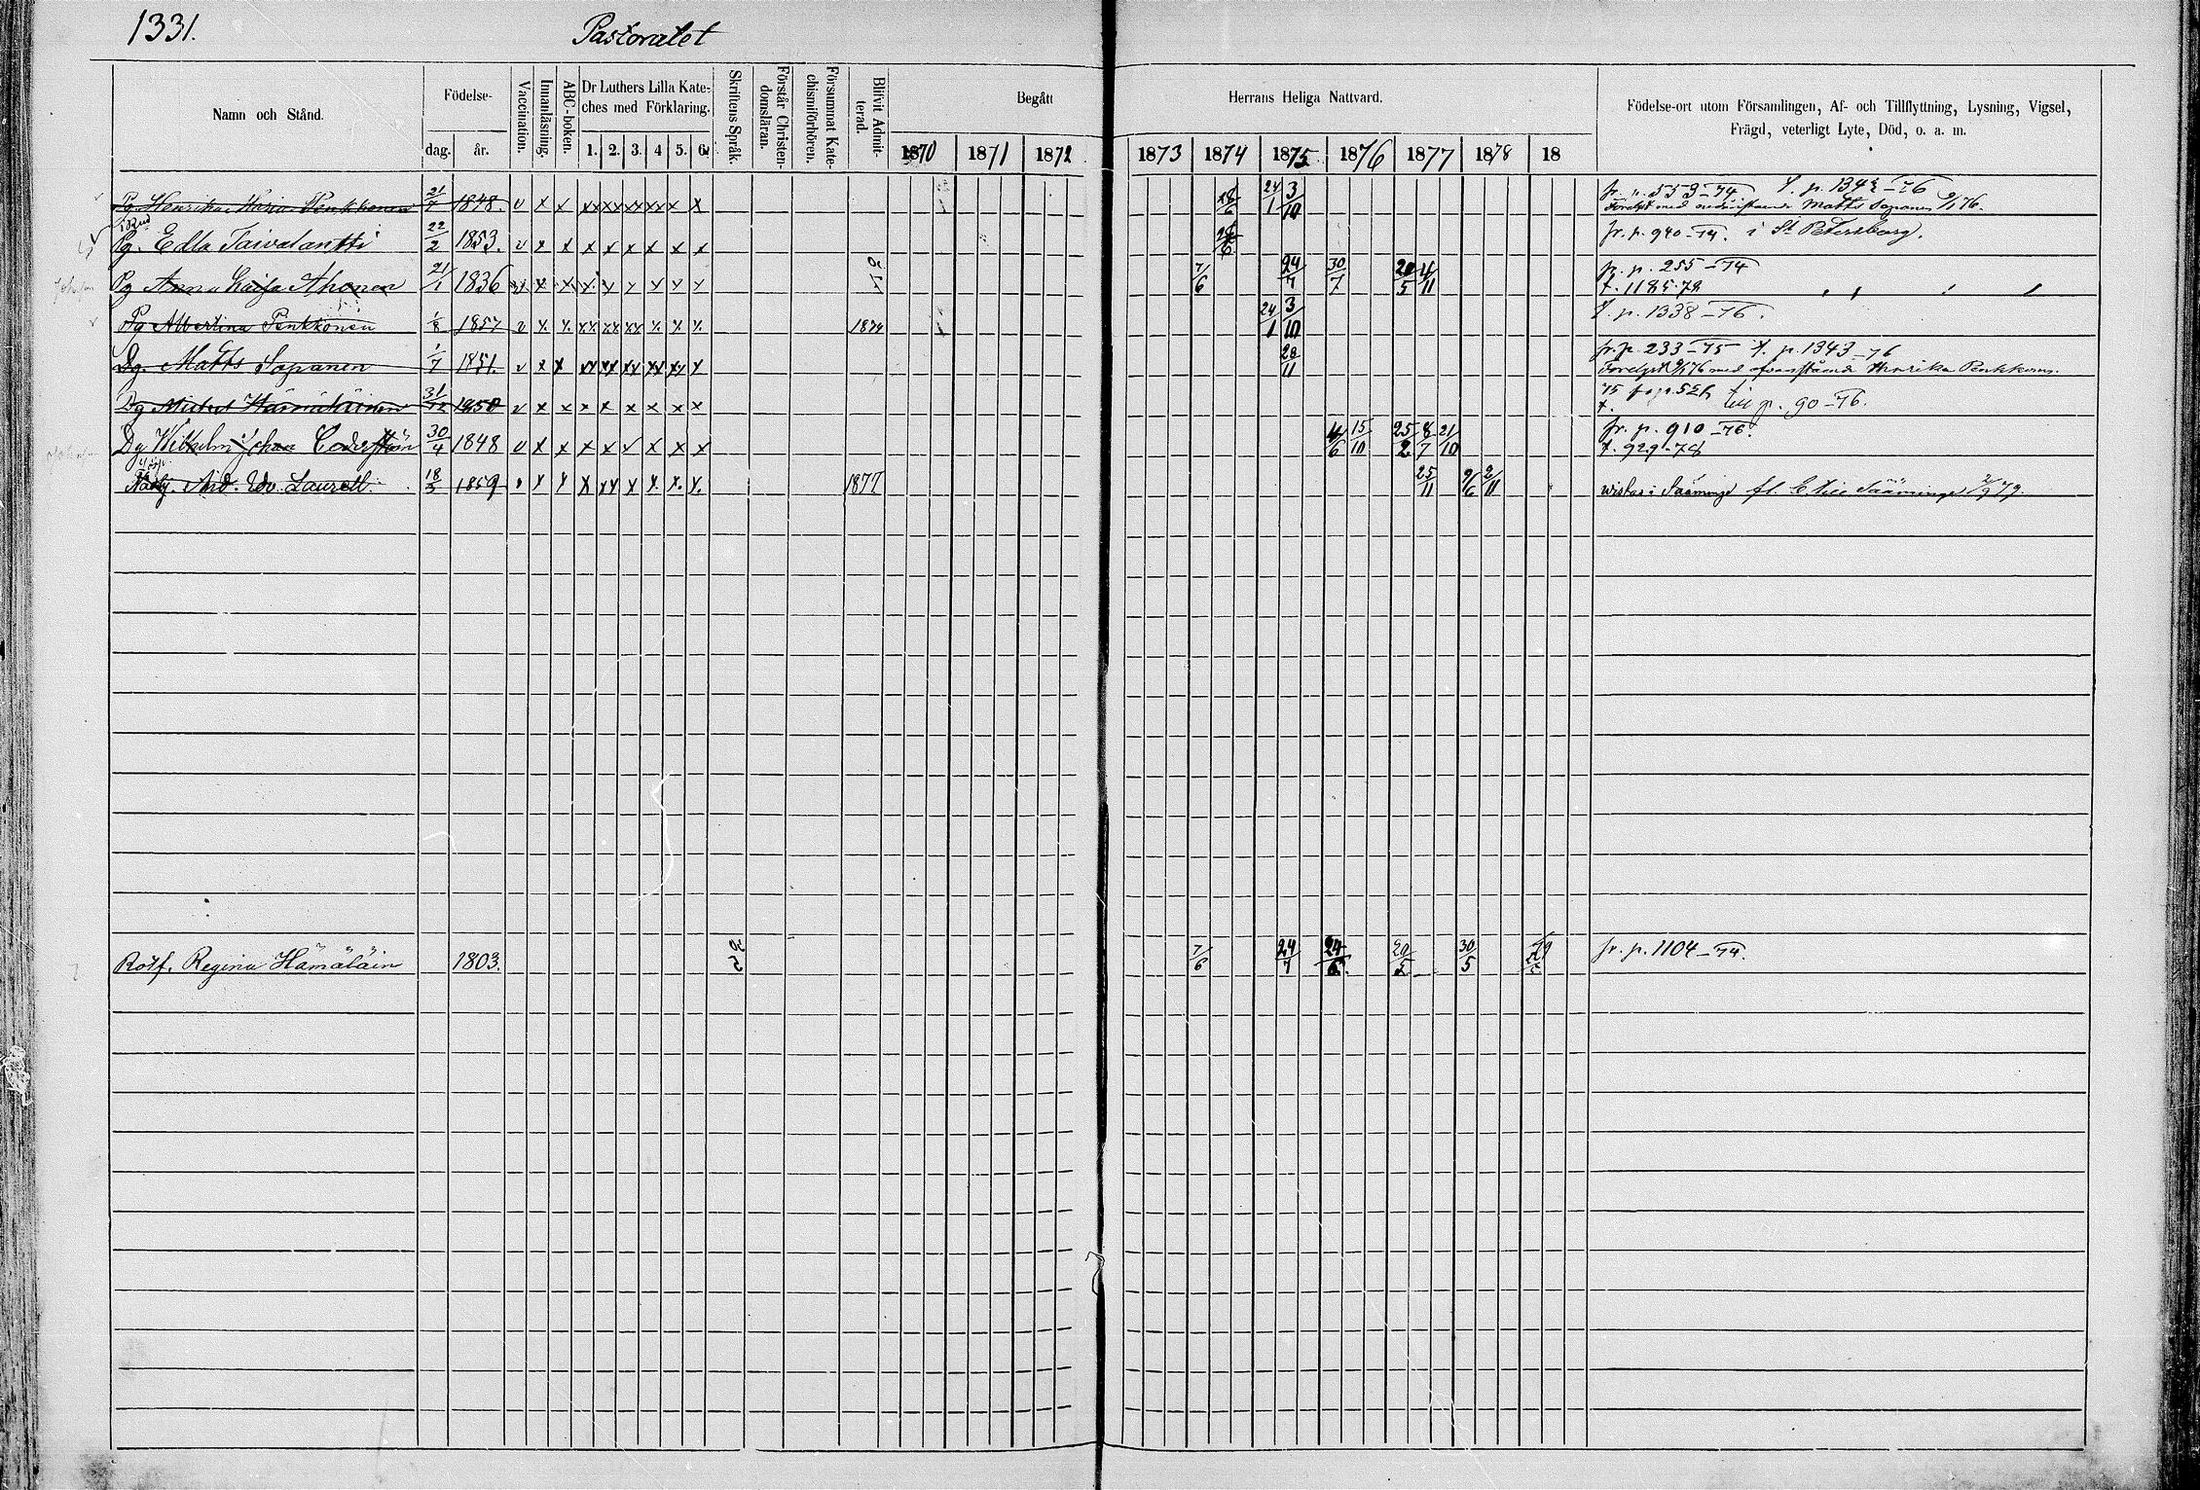 1331.
Pastoratet
Namn och Stånd.
Födelse-
dag. år.
Vaccination.
Innanläsning.
ABC-boken.
Dr Luthers Lilla Kate-
ches med Förklaring.
1. 2. 3. 4 5. 6.
Skriftens Språk.
Förstår Christen-
domsläran.
Försummat Kate-
chismiförhören.
Blifvit Admit-
terad.
Begått
1870 1871 1872
Herrans Heliga Nattvard.
1873 1874 1875 1876 1877 1878 18
Födelse-ort utom Församlingen, Af- och Tillflyttning, Lysning, Vigsel,
Frägd, veterligt Lyte, Död, o. a. m.
Pg. Henrika Maria Penkkonen 21/7 1848. v x x xx xx xx xx x x 18/6 24/1 3/10 fr. p. 553-74 f. p. 1343-76
med Matts Sapanen
Pg. Edla Taivalantti 22/2 1853. v x x x x x x x x 28/6 fr. p. 940-74. i St Petersburg.
Pg Anna Kaisa Ahonen 21/1 1836 7/6 24/1 30/7 20/5 4/11 fr. p. 255-74
t. 1185-78
Pg Albertina Penkkonen 1/8 1857 v x x xx xx xx x x x 1874 24/1 3/10 f. p. 1338-76.
Dg. Matts Sapanen 1/7 1851. v x x xx xx xx xx xx x 28/11 fr. p. 233-75 f. p. 1343-76
med Henrika Penkkonen
Dg Mickel 31/12 1850 v x x x x x x x x till p. 90-76.
Dg Wilhelm Johan 30/4 1848 v x x x x x x x x 4/6 15/10 25/2 8/7 21/10 fr. p. 910-76.
t. 929-78
And. Edv. Laurell. 18/5 1859 1877 25/11 9/6 2/11 wistas i Sääminge
Rotf. Regina Hämäläin 1803. 7/6 24/1 24/6 20/5 30/5 fr. p. 1104-74.